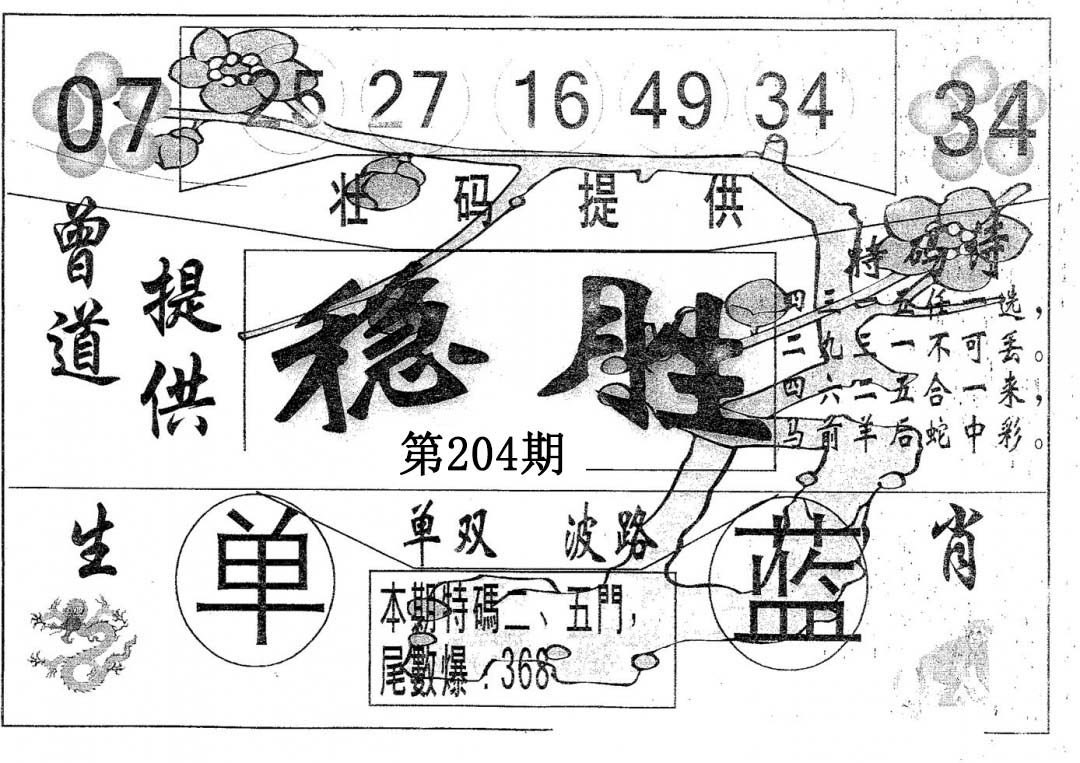 07 25 27 16 49 34 34
壮码提供
曾道
提供
稳胜
第204期
特码诗
四三一五任一选，
二九三一不可丢。
四六二五合一来，
马前羊后蛇中彩。
生 单 单双 波路 蓝 肖
本期特碼二、五門，
尾數爆：368